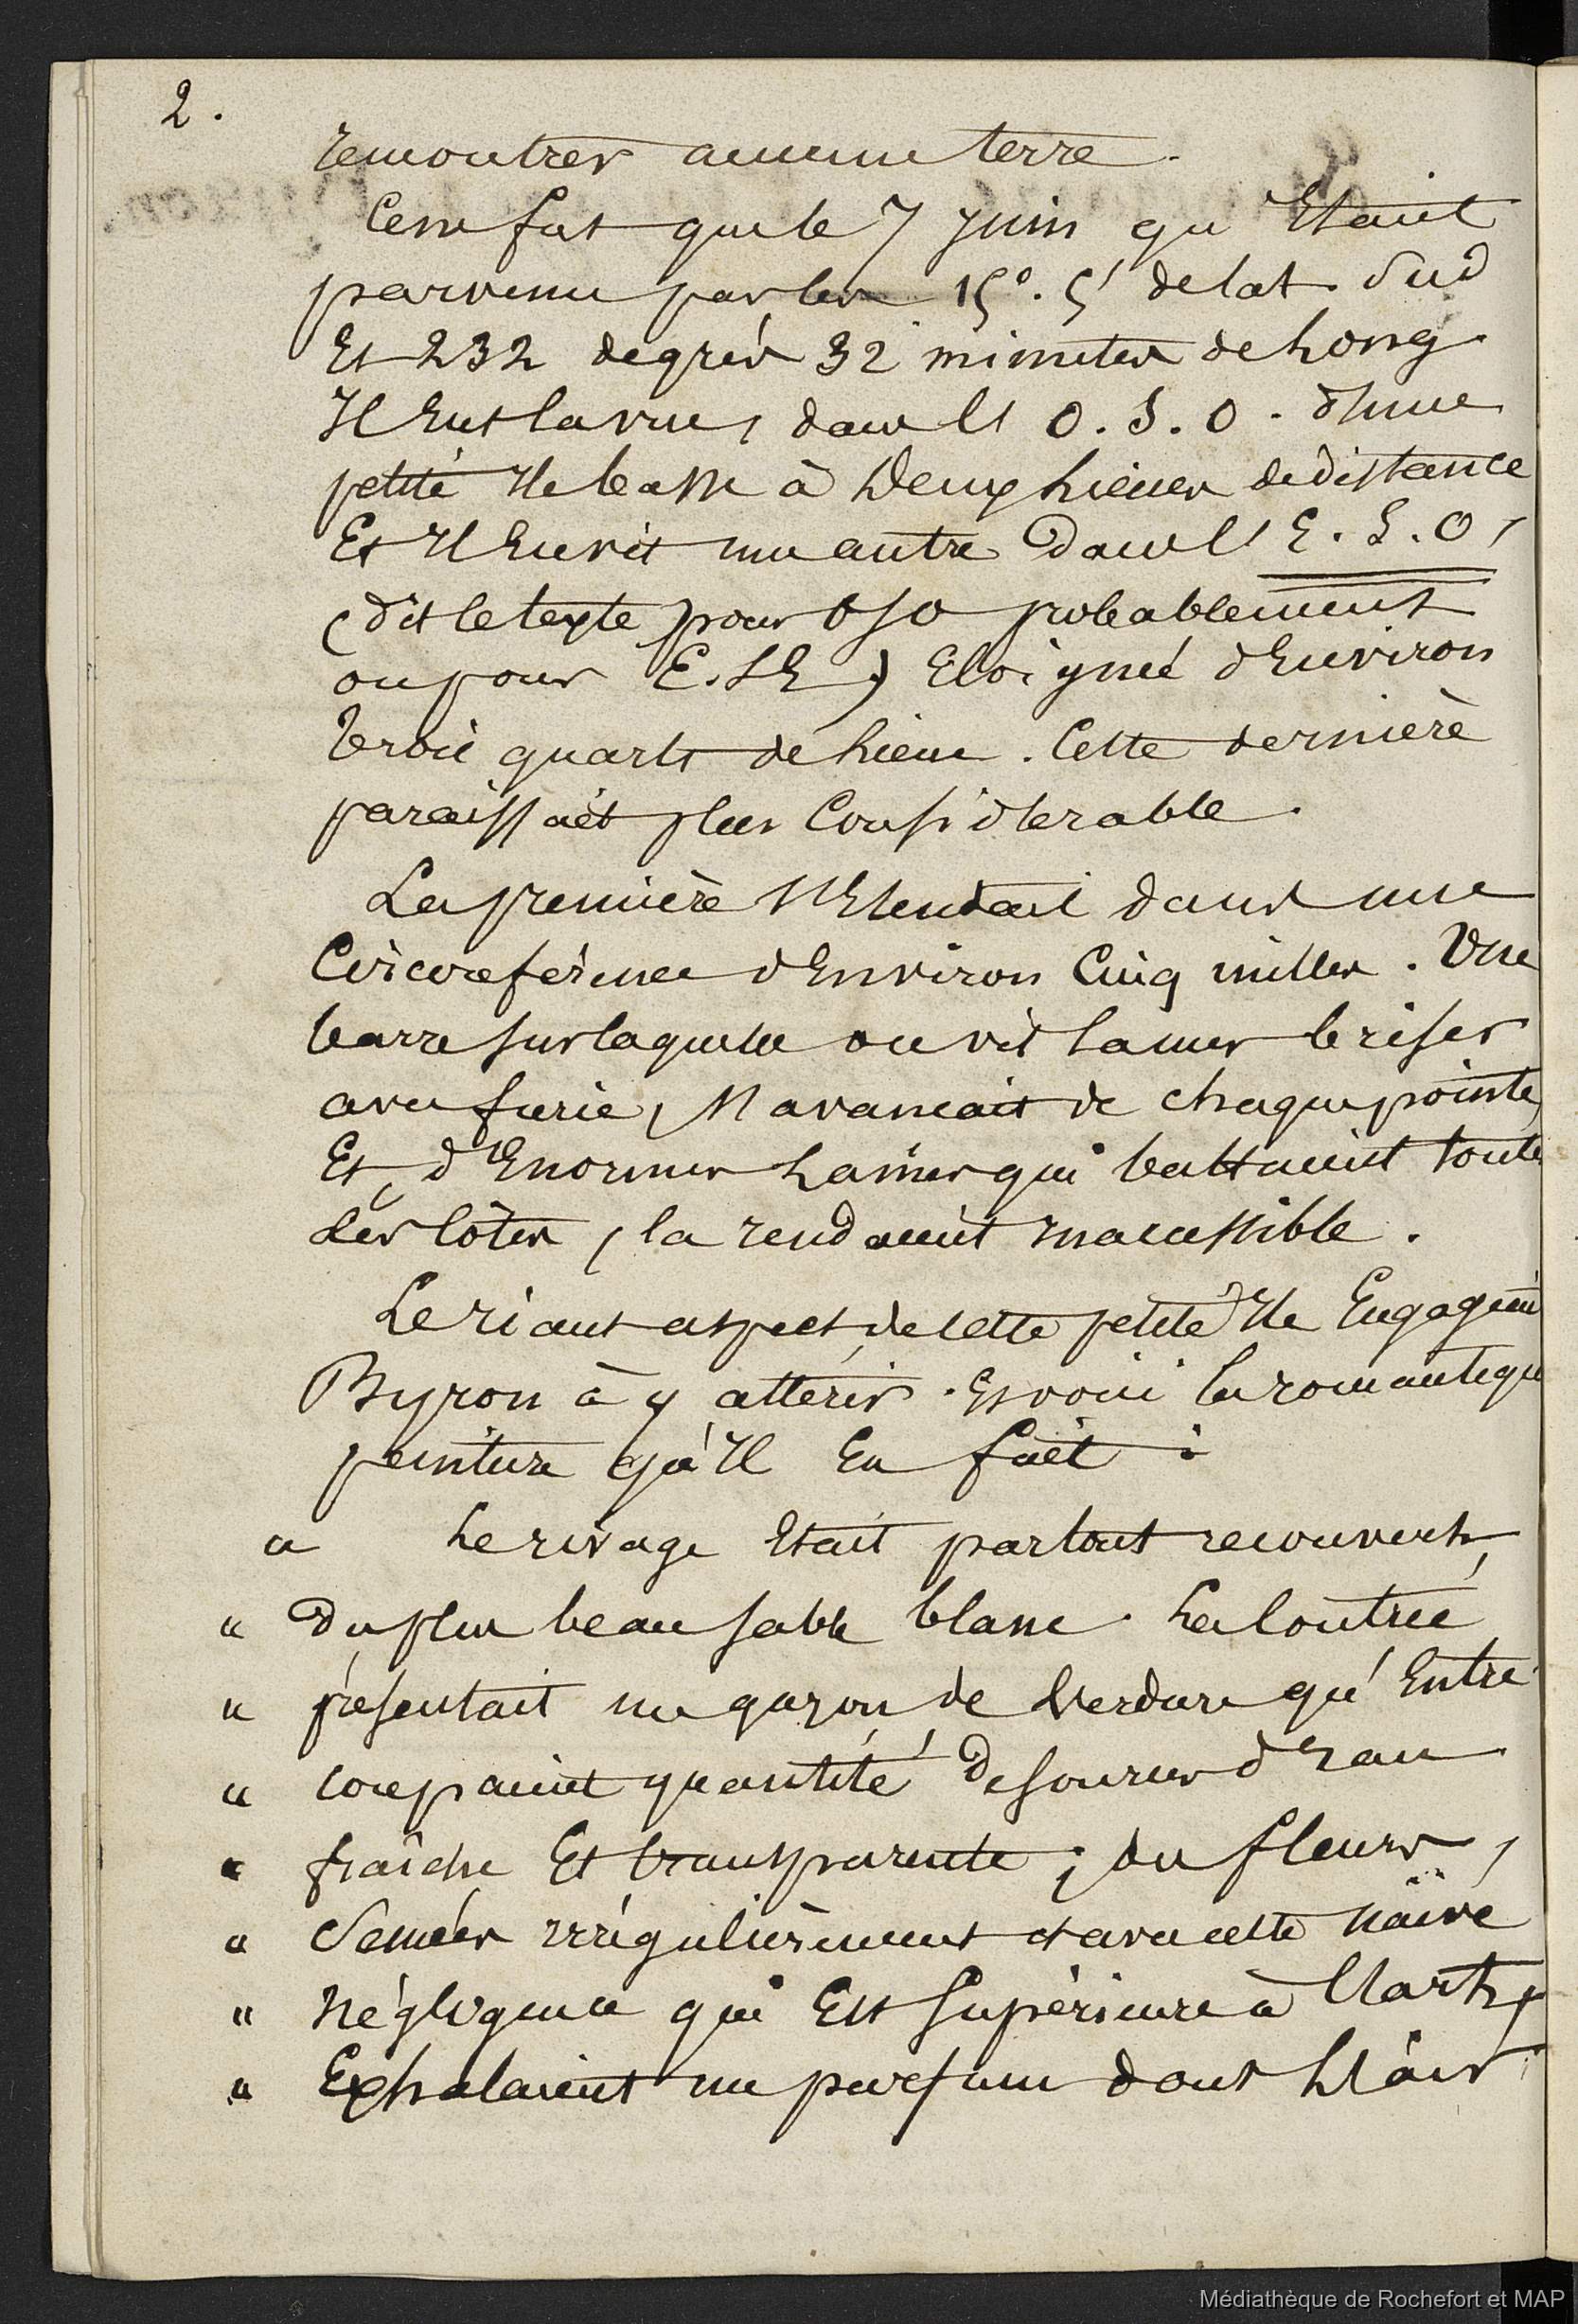 2.
rencontrer aucune terre.
Ce ne fut que le 7 Juin qu'Etant
parvenu par les 15°. 5' de lat. Sud
Et 232 degrés 32 minutes de Long.
Il Eut la vue, dans l'O.S.O. d'une
petite Ile basse à Deux Lieues de distance
Et Il En vit une autre Dans l'E.S.O,
(dit le texte pour OSO probablement
ou pour E.SE) Eloignée d'Environ
Trois quarts de Lieue. Cette dernière
paraissait plus Considérable.
La première s'Etendait dans une
Circonférence d'Environ Cinq milles. Une
barre sur laquelle on vit la mer briser
avec furie, s'avançait de chaque pointe,
Et, d'Enormes Lames qui battaient toutes
Les Côtes, la rendaient Inaccessible.
Le riant aspect de cette petite Ile Engageait
Byron à y attérir. Et voici la romantique
peinture qu'Il En fait :
" Le rivage Etait partout recouvert
" Du plus beau sable blanc. La Contrée
" présentait un gazon de Verdure qu'Entre
" coupaient quantité De sources d'Eau
" fraîche Et transparente ; des fleurs,
" Semées irrégulièrement et avec cette naïve
" Négligence qui Est Supérieure à l'art,
" Exhalaient un parfum dont L'air
Médiathèque de Rochefort et MAP